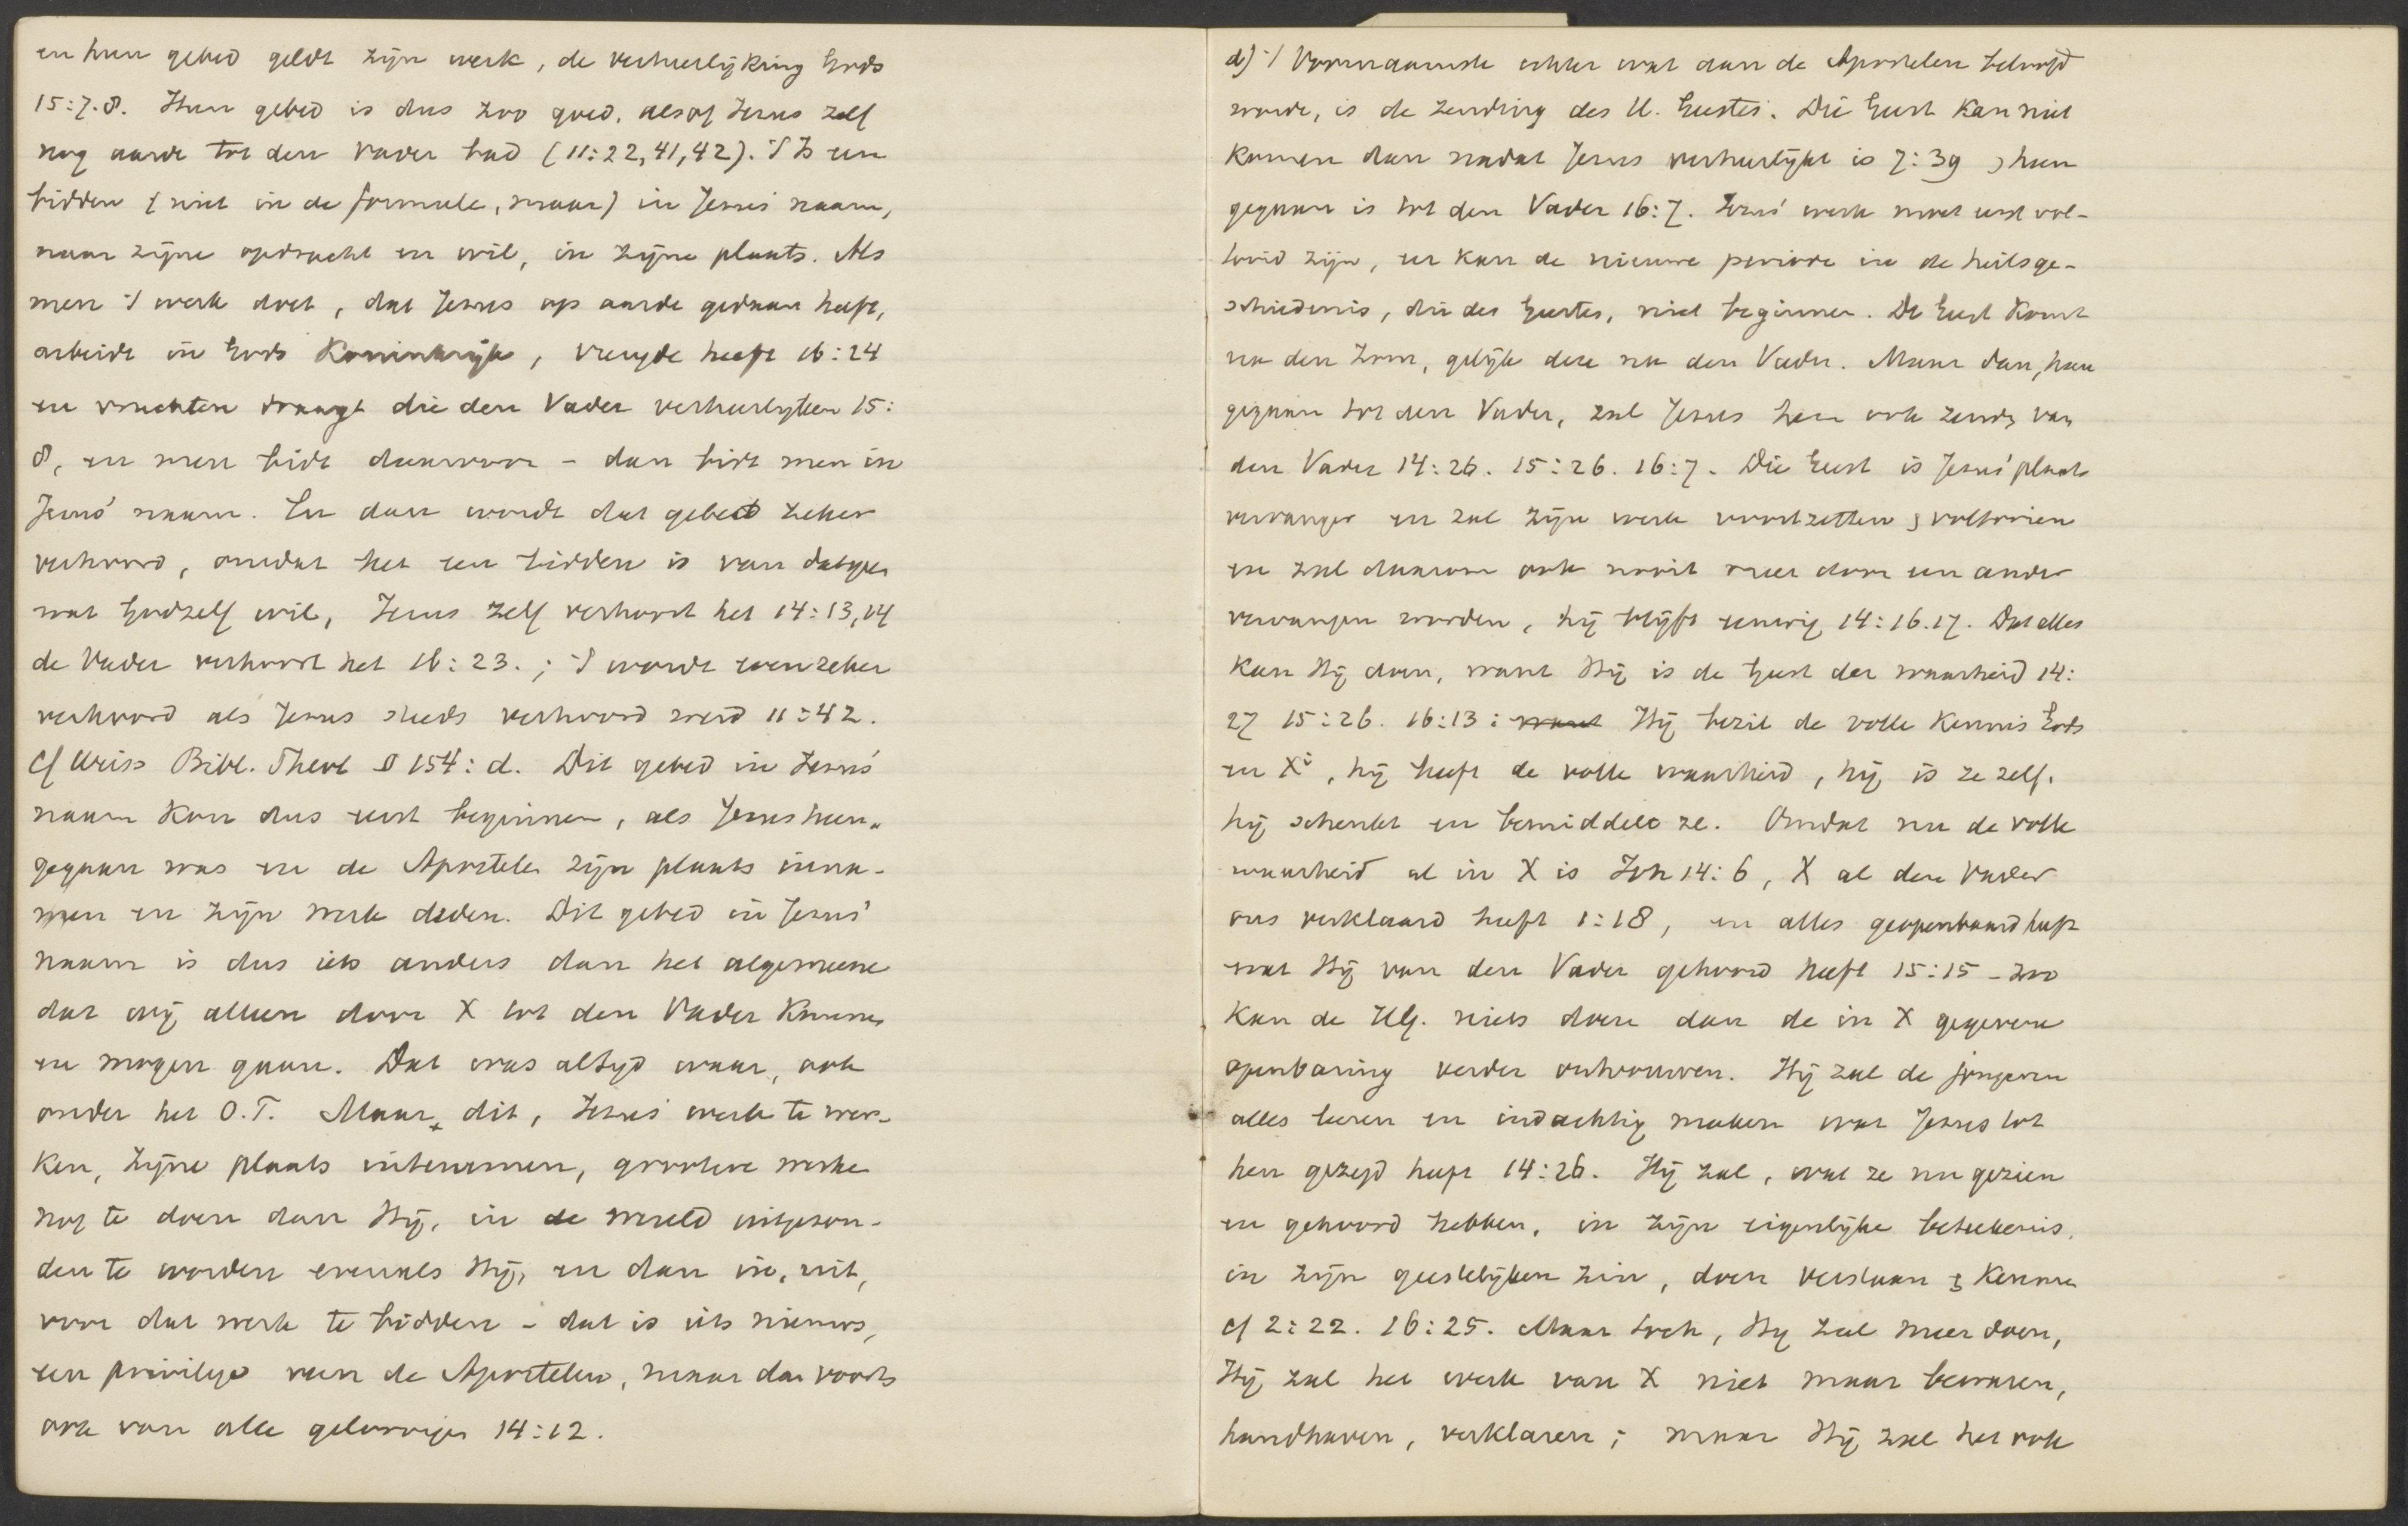 en hun gebed geldt zijn werk, de verheerlijking Gods
15:7.8. Hun gebed is dus zoo goed, alsof Jezus zelf
nog aarde tot den Vader bad (11:22,41,42). 't Is een
bidden (niet in de formule, maar) in Jezus' naam,
naar zijne opdracht en wil, in zijne plaats. Als
men 't werk doet, dat Jezus op aarde gedaan heeft,
arbeidt in Gods Koninkrijk, vreugde heeft 16:24
en vruchten draagt die den Vader verheerlijken 15:
8, en men bidt daarvoor - dan bidt men in
Jezus' naam. En dan wordt dat gebed zeker
verhoord, omdat het een bidden is van datgene
wat God zelf wil, Jezus zelf verhoort het 14:13,14
de Vader verhoort het 16:23.; 't wordt evenzeker
verhoord als Jezus steeds verhoord werd 11:42.
cf Weiss Bibl. Theol § 154: d. Dit gebed in Jezus'
naam kon dus eerst beginnen, als Jezus heen-
gegaan was en de Apostelen zijn plaats inna-
men en zijn werk deden. Dit gebed in Jezus'
naam is dus iets anders dan het algemeene
dat wij alleen door X tot den Vader kunnen
en mogen gaan. Dat was altijd waar, ook
onder het O.T. Maar dit, Jezus' werk te wer-
ken, zijne plaats intenemen, grootere werken
nog te doen dan Hij, in de wereld uitgezon-
den te worden evenals Hij, en dan in, uit,
voor dat werk te bidden - dat is iets nieuws,
een privilege van de Apostelen, maar dan voorts
ook van alle geloovigen 14:12.
d) 't Voornaamste echter wat aan de Apostelen beloofd
wordt, is de zending des H. Geestes. Die Geest kan niet
komen dan nadat Jezus verheerlijkt is 7:39 heen
gegaan is tot den Vader 16:7. Jezus' werk moet eerst vol-
tooid zijn, en kan de nieuwe periode in de heilsge-
schiedenis, die des Geestes, niet beginnen. De Geest komt
na den Zoon, gelijk deze na den Vader. Maar dan, heen
gegaan tot den Vader, zal Jezus hem ook zenden van
den Vader 14:26. 15:26. 16:7. Die Geest is Jezus' plaats
vervanger en zal zijn werk voortzetten & voltooien
en zal daarom ook nooit meer door een ander
vervangen worden, hij blijft eeuwig 14:16.17. Dat alles
kan Hij doen, want Hij is de Geest der waarheid 14:
27 15:26. 16:13: want Hij bezit de volle kennis Gods
in Xi, hij heeft de volle waarheid, hij is ze zelf.
hij schenkt en bemiddelt ze. Omdat nu de volle
waarheid al in X is Joh 14:6, X al den Vader
ons verklaard heeft 1:18, en alles geopenbaard heeft
wat Hij van den Vader gehoord heeft 15:15 - zoo
kan de HG. niets doen dan de in X gegevene
openbaring verder ontvouwen. Hij zal de jongeren
alles leeren en indachtig maken wat Jezus tot
hen gezegd heeft 14:26. Hij zal, wat ze nu gezien
en gehoord hebben, in zijn eigenlijke beteekenis,
in zijn geestelijken zin, doen verstaan & kennen
cf 2:22. 16:25. Maar toch, Hij zal meer doen,
Hij zal het werk van X niet maar bewaren,
handhaven, verklaren; maar Hij zal het ook